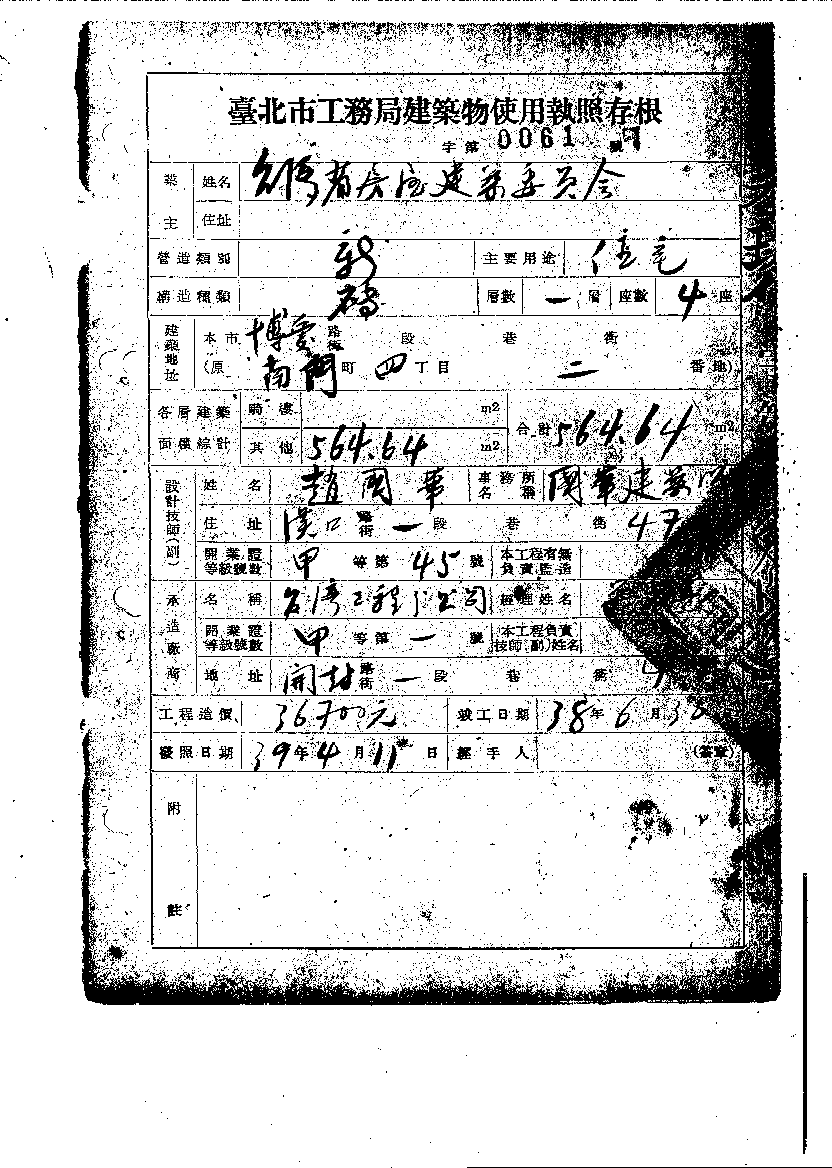 臺北市工務局建築物使用執照存根
字第 0061 號
業主 姓名 台灣省房屋建築委員会
住址
營造類別 新 主要用途 住宅
構造種類 磚 層數 一 層 座數 4 座
建築地址 本市 博愛 路街 段 巷 衖
(原 南門 町 四 丁目 二 番地)
各層建築面積綜計 騎樓 m2 合計 564.64 m2
其他 564.64 m2
設計技師(副) 姓名 趙國華 事務所名稱 國華建築
住址 漢口 路街 一 段 巷 衖 47
開業證等級號數 甲 等第 45 號 本工程有無負責監造
承造廠商 名稱 台灣工程公司 經理姓名
開業證等級號數 甲 等第 一 號 本工程負責技師(副)姓名
地址 開封 路街 一 段 巷 衖
工程造價 36700元 竣工日期 38年6月30
發照日期 39年4月11日 經手人 (簽章)
附註